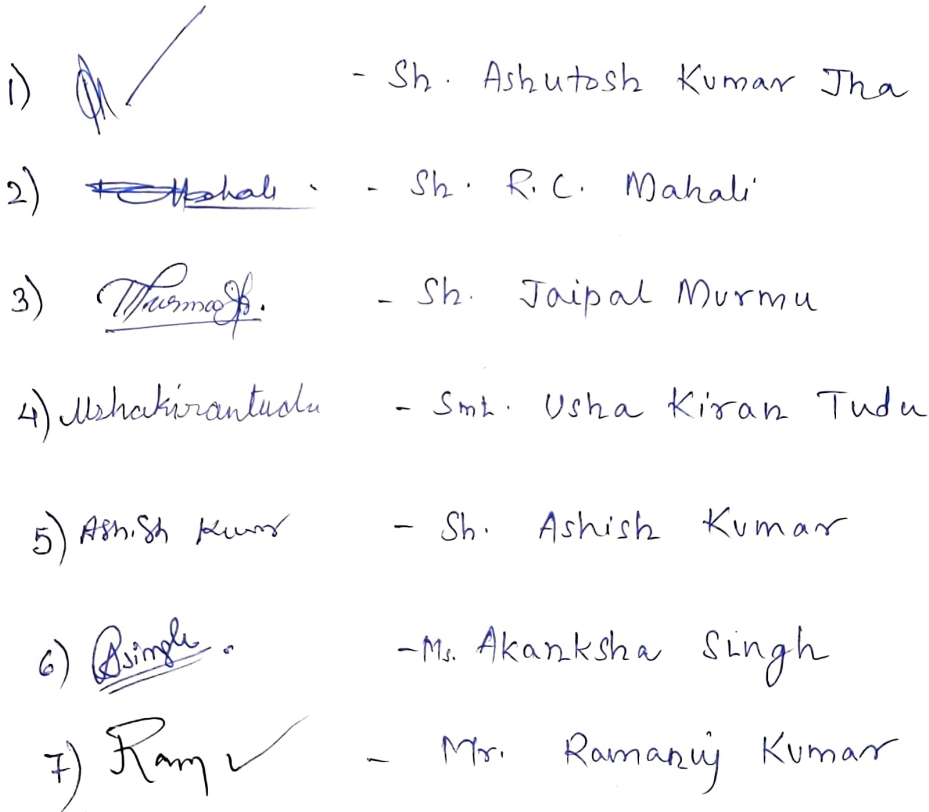 1) - Sh. Ashutosh Kumar Jha
2) Mahali - Sh. R.C. Mahali
3) - Sh. Jaipal Murmu
4) Ushakirantudu - Smt. Usha Kiran Tudu
5) Ashish Kumar - Sh. Ashish Kumar
6) Asingh. - Ms. Akanksha Singh
7) Ram - Mr. Ramanuj Kumar